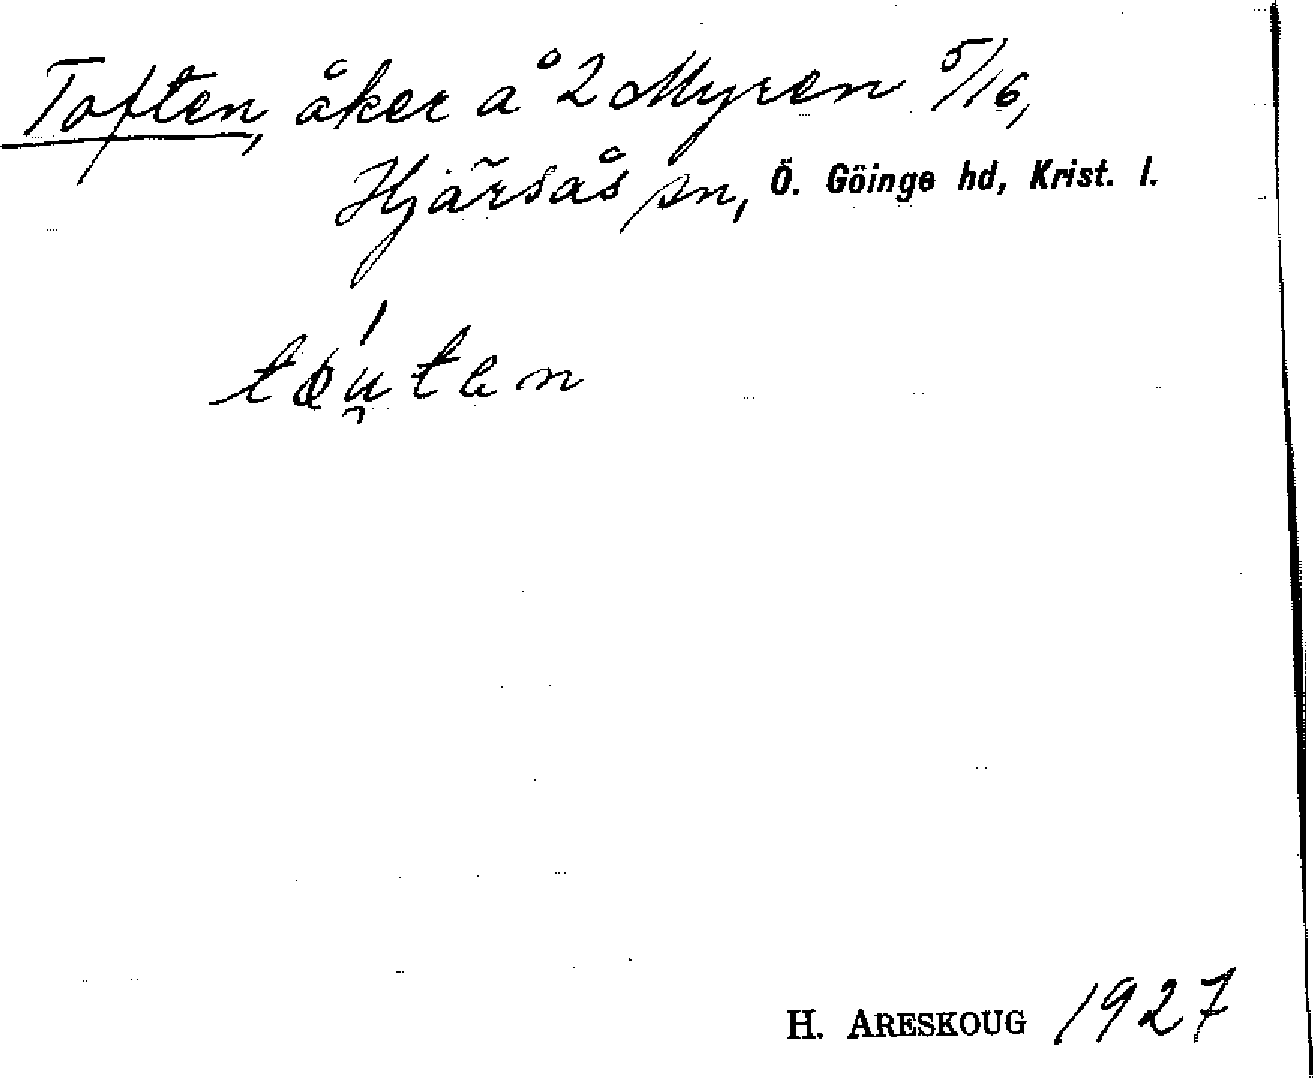 Toften, åker å 2 Myren 5/16,
Hjärsås sn, Ö. Göinge hd, Krist. l.
H. ARESKOUG 1927